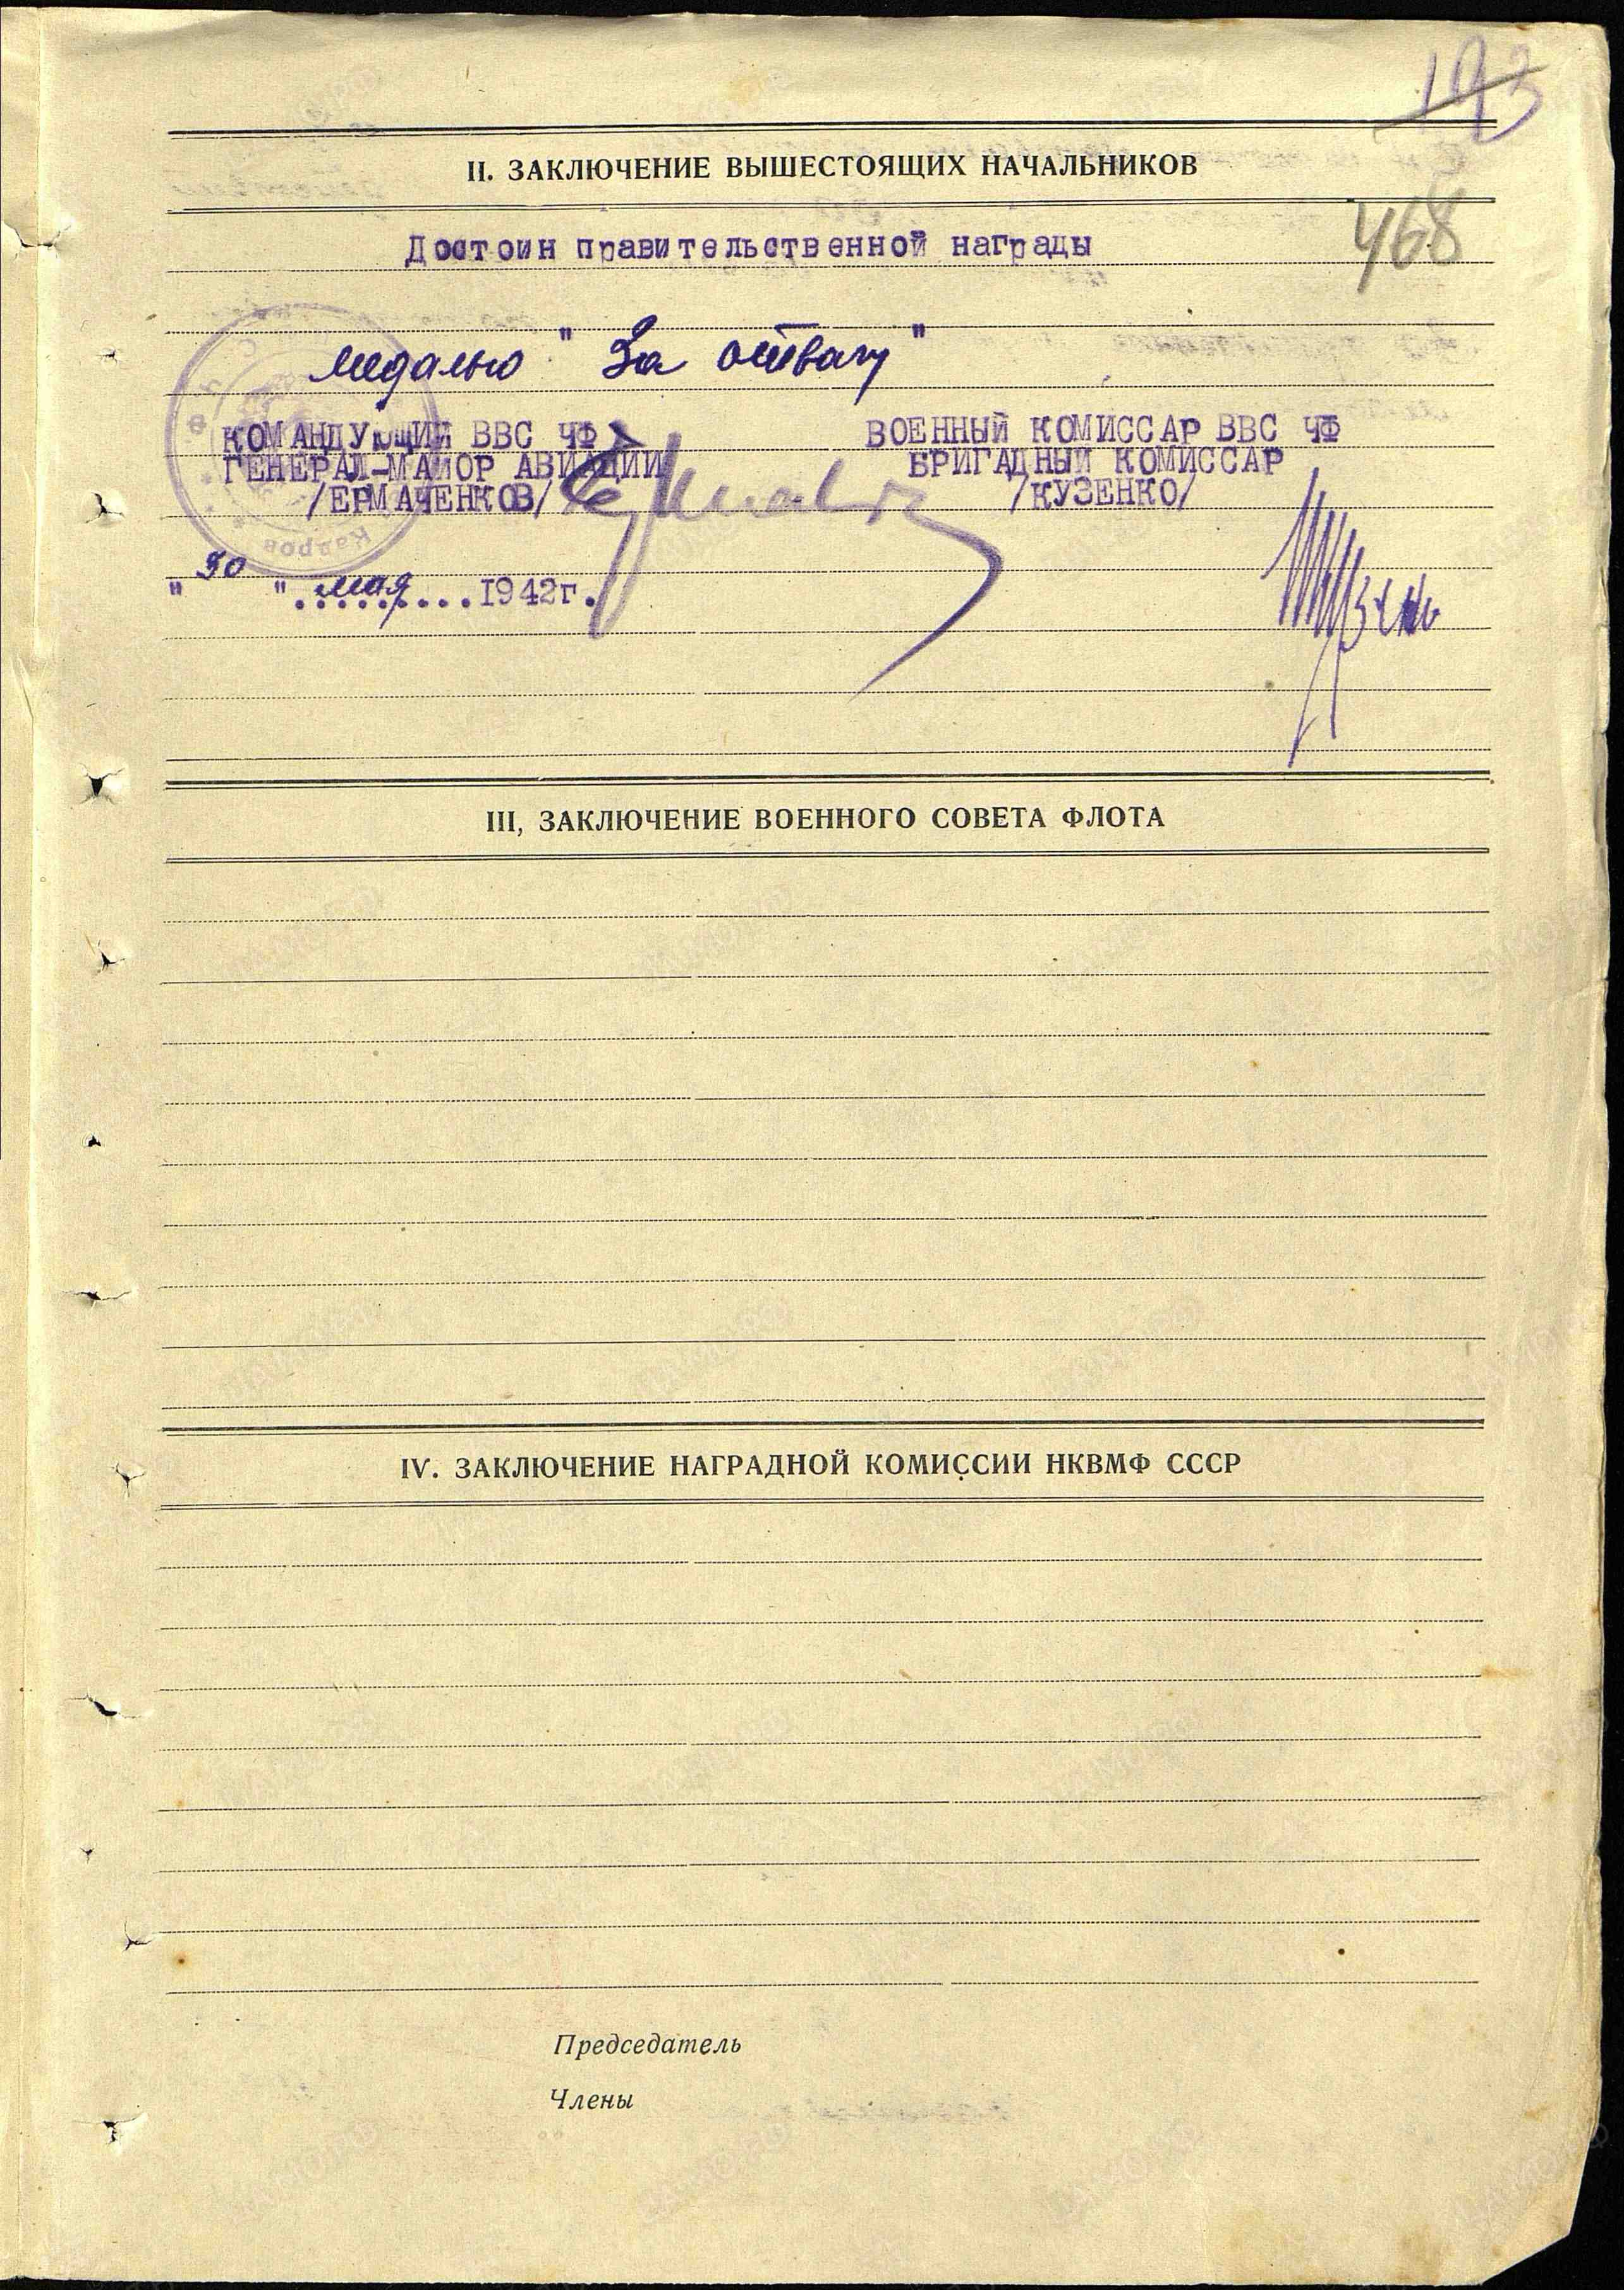 193
468
II. ЗАКЛЮЧЕНИЕ ВЫШЕСТОЯЩИХ НАЧАЛЬНИКОВ
Достоин правительственной награды
медалью "За отвагу"
КОМАНДУЮЩИЙ ВВС ЧФ
ГЕНЕРАЛ-МАЙОР АВИАЦИИ
/ЕРМАЧЕНКОВ/
ВОЕННЫЙ КОМИССАР ВВС ЧФ
БРИГАДНЫЙ КОМИССАР
/КУЗЕНКО/
"30" мая 1942г.
III, ЗАКЛЮЧЕНИЕ ВОЕННОГО СОВЕТА ФЛОТА
IV. ЗАКЛЮЧЕНИЕ НАГРАДНОЙ КОМИССИИ НКВМФ СССР
Председатель
Члены